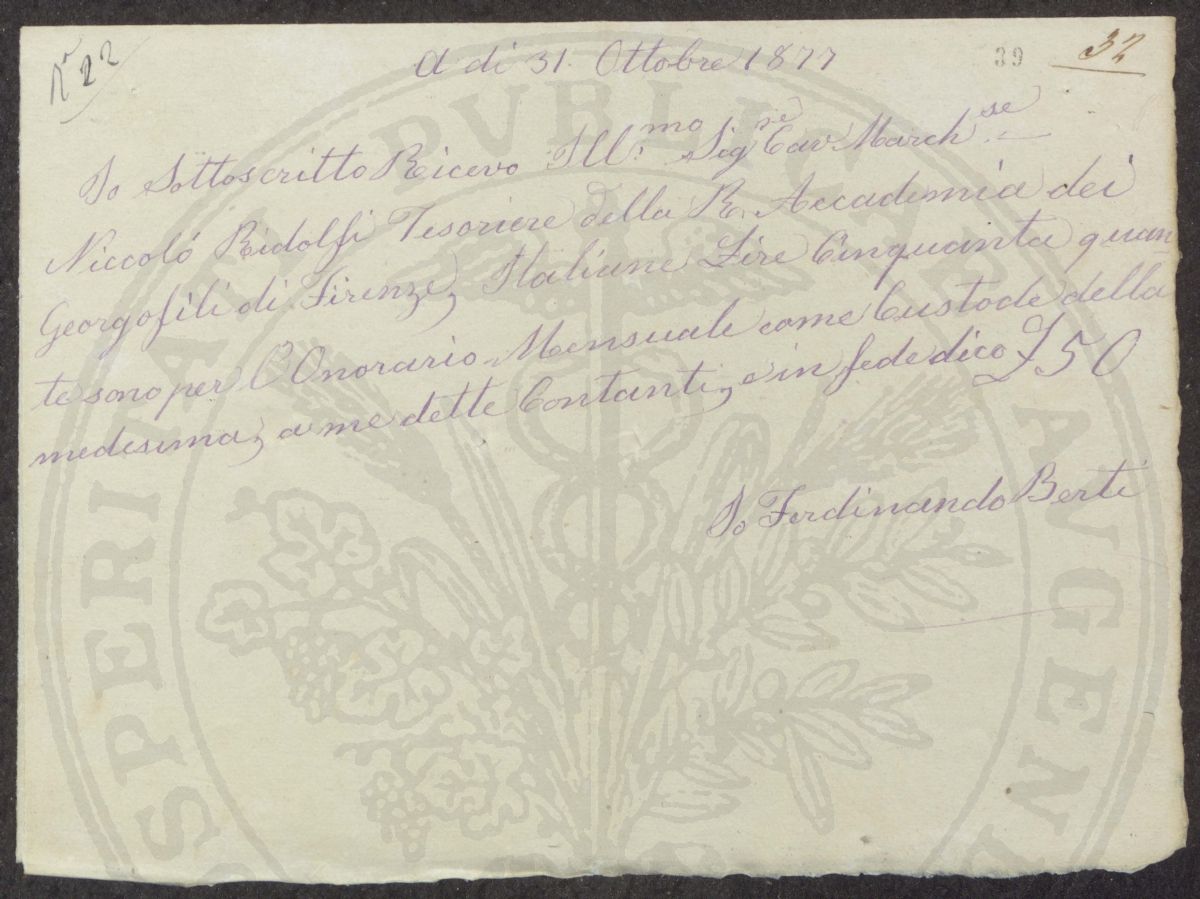 Nº 22
A dì 31. Ottobre 1877
39
32
Io Sottoscritto Ricevo Ill:mo Sigre Cav March.se
Niccoló Ridolfi Tesoriere della R. Accademia dei
Georgofili di Firenze, Italiane Lire Cinquanta quan
te sono per l'Onorario Mensuale come Custode della
medesima, a me dette Contanti, e in fede dico £50
Io Ferdinando Berti
PROSPERITATI PVBLICAE AVGEND